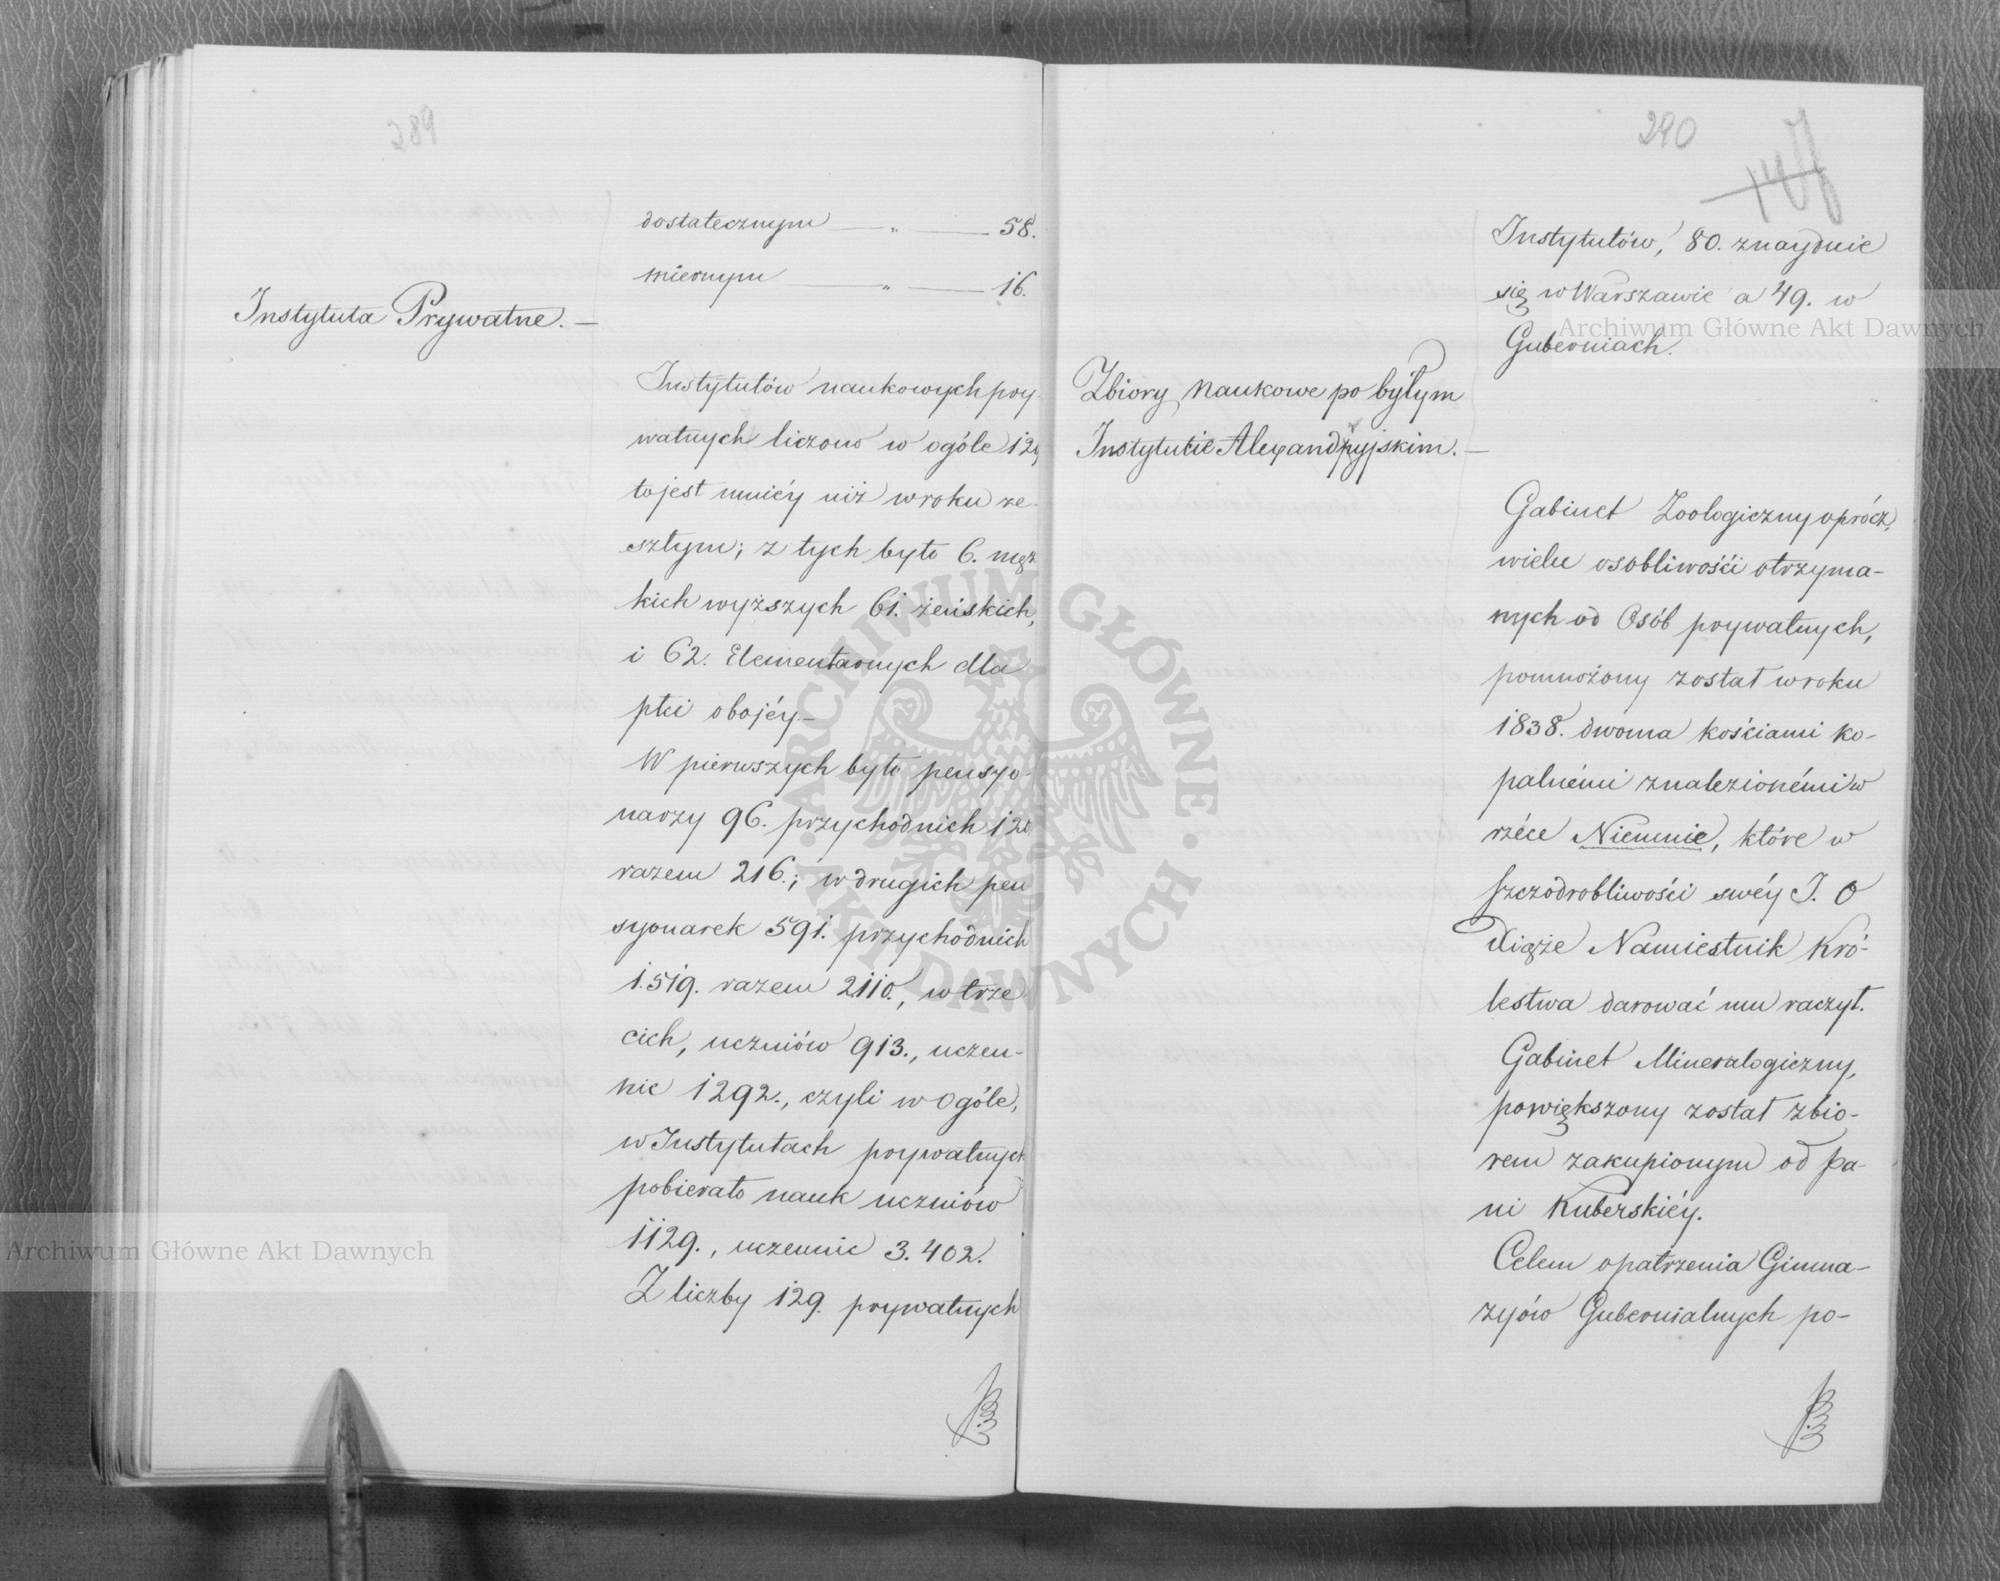 289
dostatecznym — „ — 58.
miernym „ — 16.
Instytuta Prywatne. —
Instytutów naukowych pry-
watnych liczono w ogóle 129
to jest mniéy niż w roku ze-
szłym; z tych było 6. męz-
kich wyższych 61. żeńskich,
i 62. Elementarnych dla
płci obojéy.—
W pierwszych było pensyo-
narzy 96. przychodnich 120
razem 216.; w drugich pen
syonarek 591. przychodnich
1.519. razem 2110., w trze
cich, uczniów 913., uczen-
nic 1292., czyli w ogóle,
w Instytutach prywatnych
pobierało nauk uczniów
1129., uczennic 3.402.
Z liczby 129. prywatnych
290
Instytutów, 80. znayduie
się w Warszawie a 49. w
Guberniach.
Zbiory naukowe po byłym
Instytucie Alexandryjskim. —
Gabinet Zoologiczny oprócz
wielu osobliwości otrzyma-
nych od Osób prywatnych,
pomnożony został w roku
1838. dwoma kościami ko-
palnémi znalezionémi w
rzéce Niemnie, które w
szczodrobliwości swéy J. O
Xiąże Namiestnik Kró-
lestwa darować mu raczył.
Gabinet Mineralogiczny,
powiększony został zbio-
rem zakupionym od Pa-
ni Kuberskiéy.
Celem opatrzenia Gimna-
zyów Gubernialnych po-
Archiwum Główne Akt Dawnych
Archiwum Główne Akt Dawnych
ARCHIWUM GŁÓWNE · AKT DAWNYCH ·